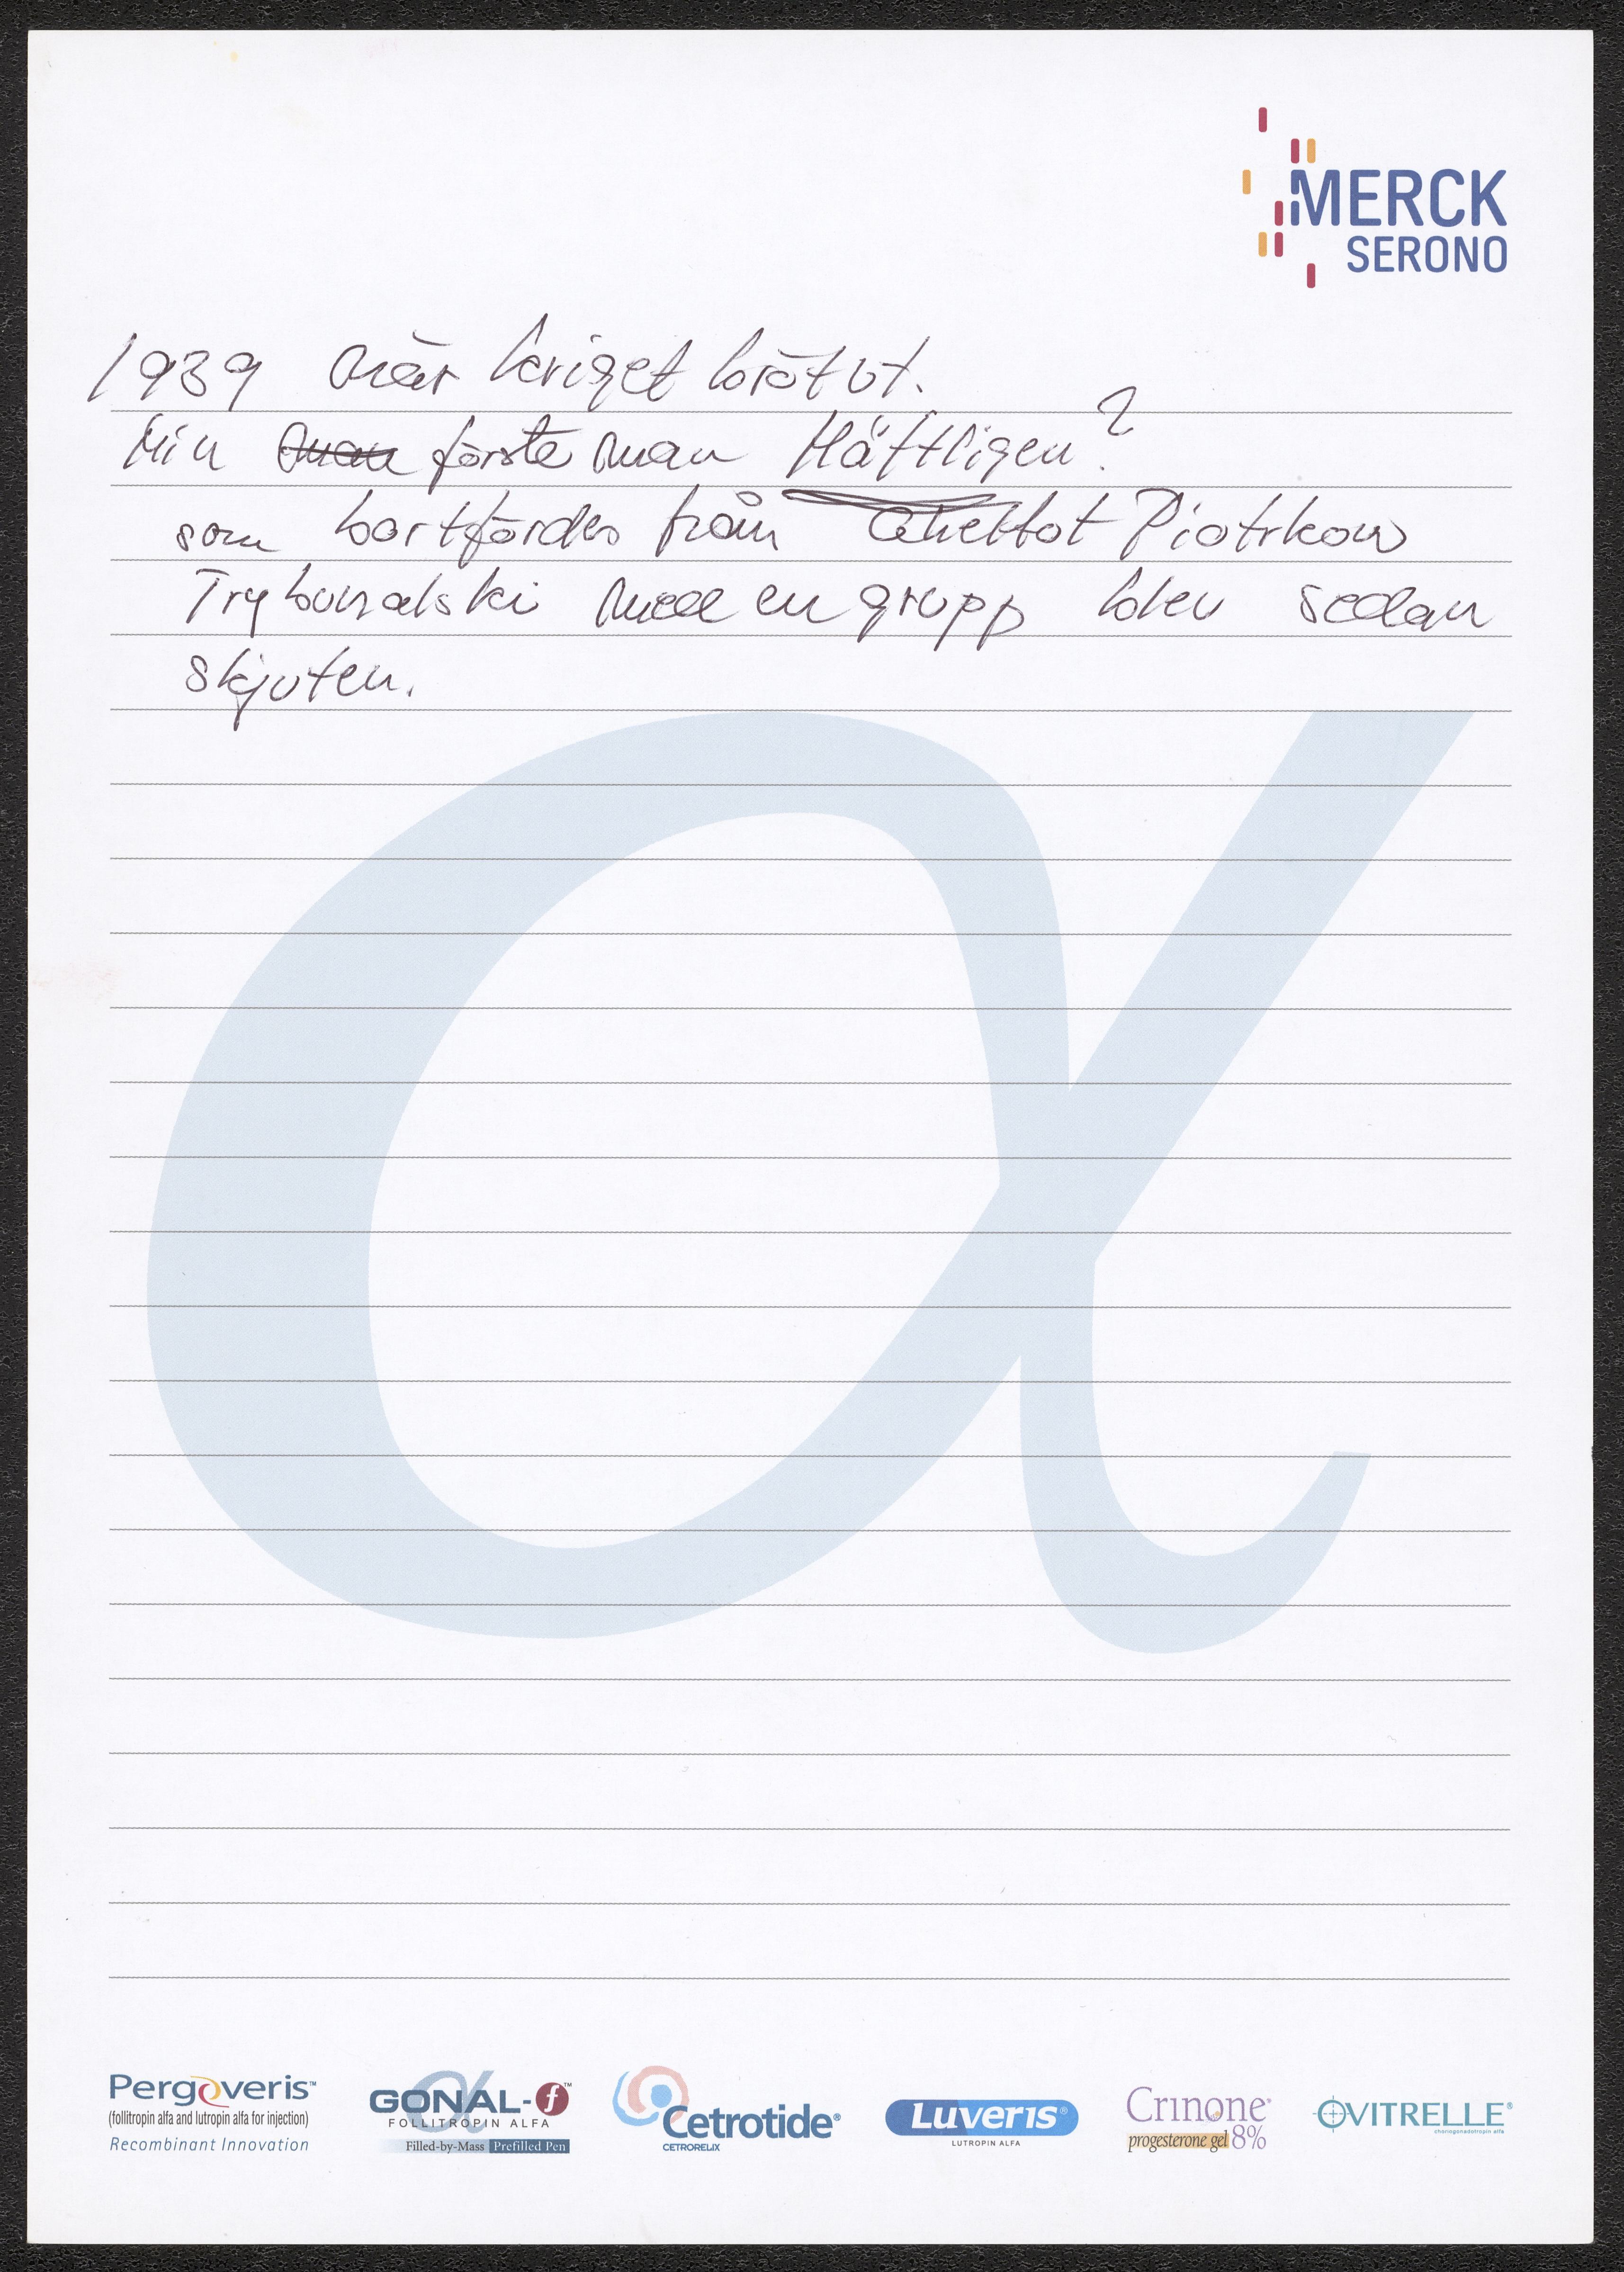 MERCK
SERONO
1939 när kriget bröt ut.
Min man förste man Häftligen?
som bortfördes från Ghettot Piotrkow
Trybunalski med en grupp blev sedan
skjuten.
Pergoveris™
(follitropin alfa and lutropin alfa for injection)
Recombinant Innovation
GONAL-f™
FOLLITROPIN ALFA
Filled-by-Mass Prefilled Pen
Cetrotide®
CETRORELIX
Luveris®
LUTROPIN ALFA
Crinone®
progesterone gel 8%
OVITRELLE®
choriogonadotropin alfa